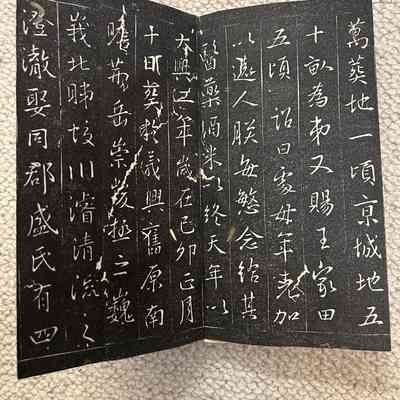 萬葬地一頃京城地五
十畝為弟又賜王家田
五頃詔曰處母年老加
以遠人朕每愍念給其
醫藥酒米以終天年以
太興二年歲在己卯正月
十日葬於義興舊原南
瞻荊岳崇峻極之巍
峩北睇蛟川濬清流之
澄澈娶同郡盛氏有四